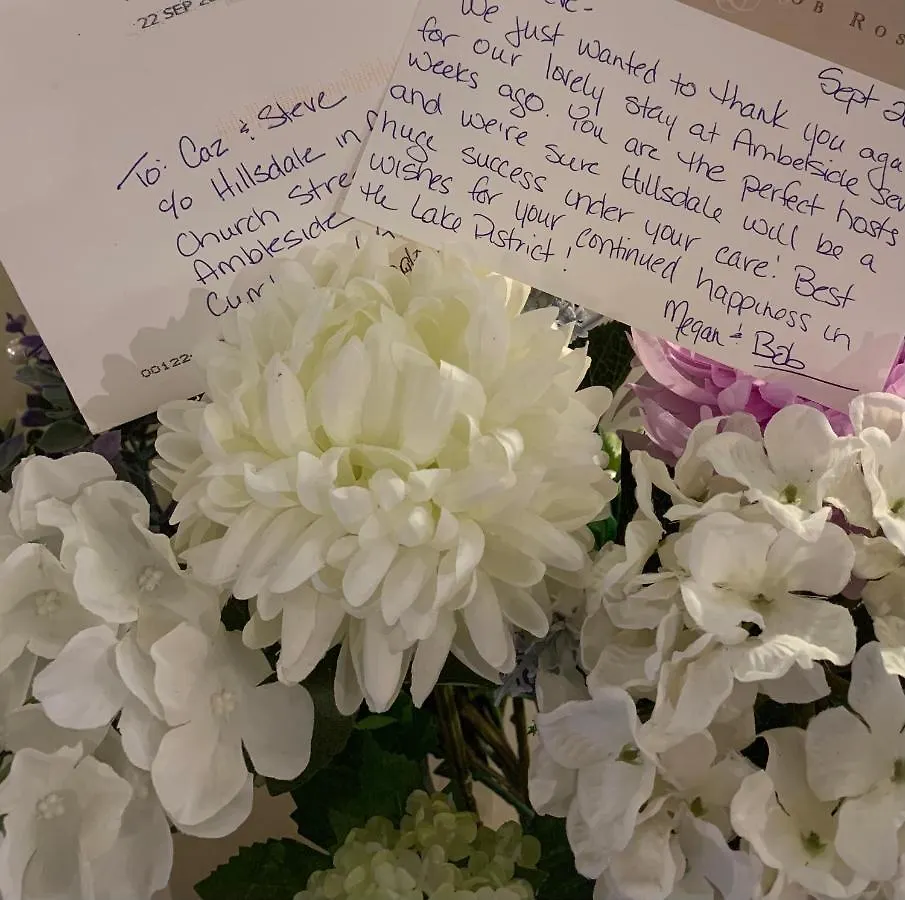 22 SEP
To: Caz & Steve
c/o Hillsdale in
Church Stre
Ambleside
00122
OB ROS
Sept 2
We just wanted to thank you aga
for our lovely stay at Ambelside sev
weeks ago. You are the perfect hosts
and we're sure Hillsdale will be a
huge success under your care! Best
wishes for your continued happiness in
the Lake District!
Megan & Bob